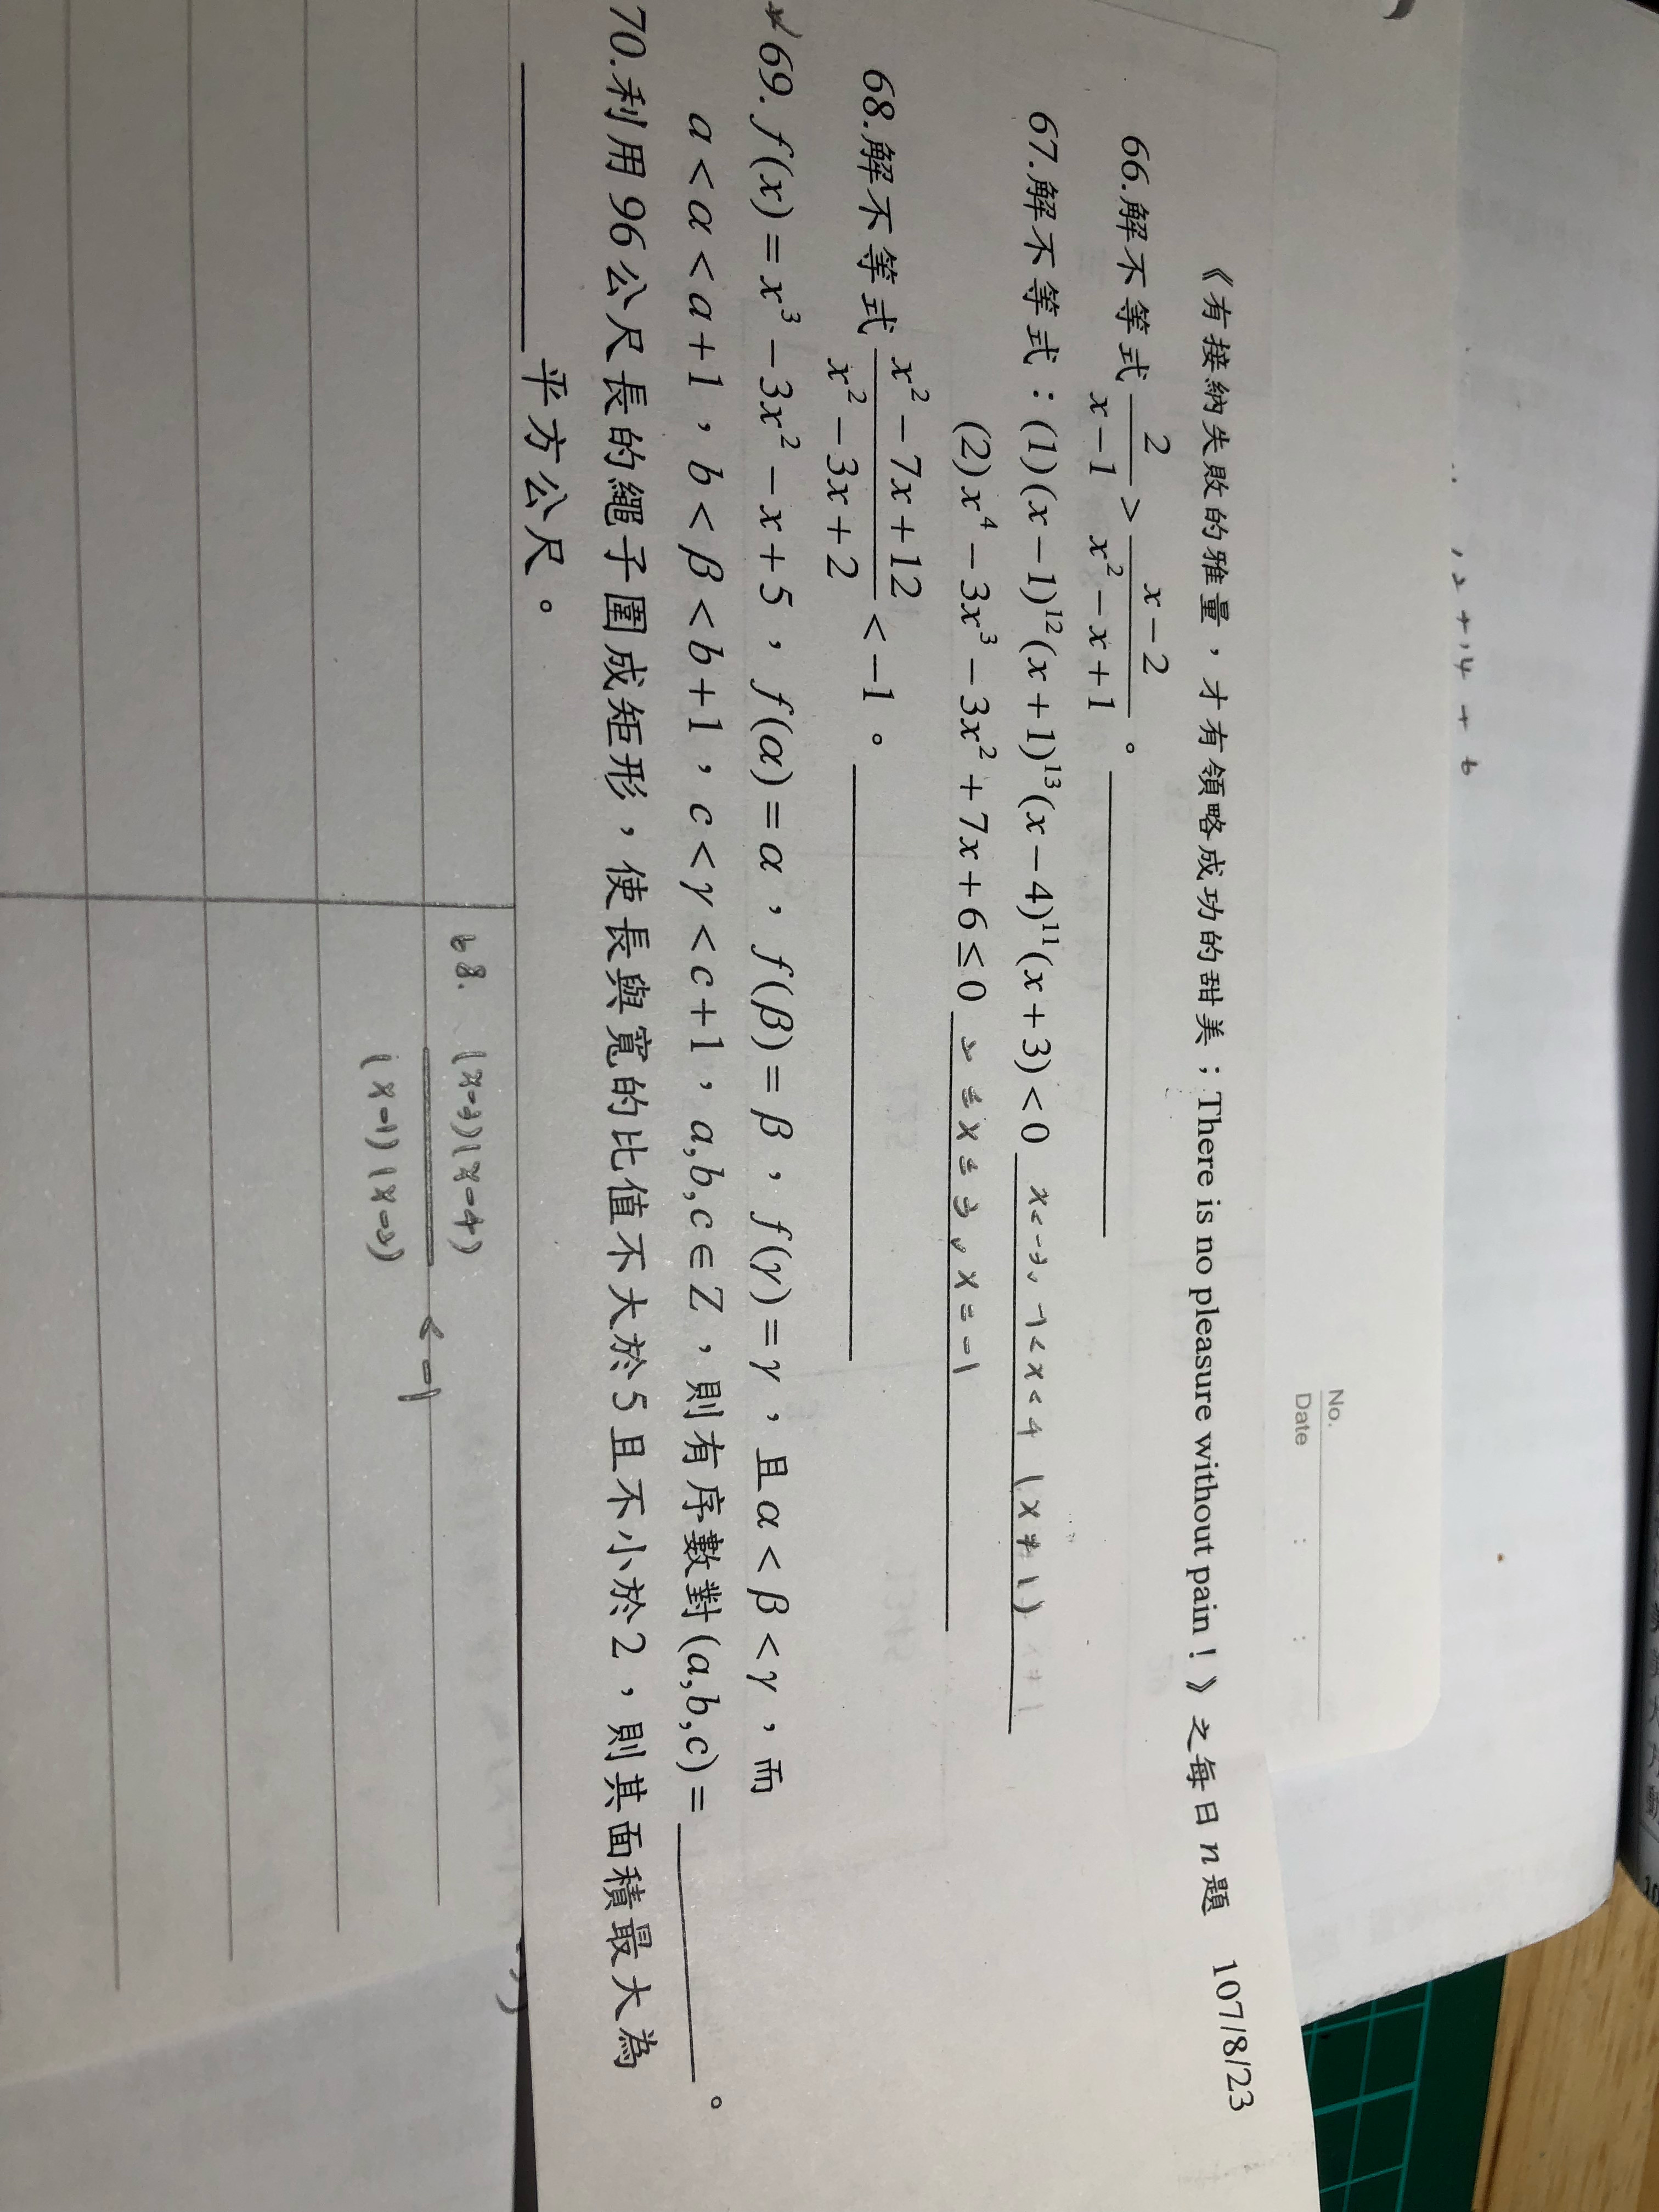 No.
Date : :
《有接納失敗的雅量，才有領略成功的甜美；There is no pleasure without pain！》之每日 n 題 107/8/23
66.解不等式 2/(x−1) > (x−2)/(x²−x+1)。
67.解不等式：(1)(x−1)¹²(x+1)¹³(x−4)¹¹(x+3)<0 x<-3, -1<x<4 (x≠1)
(2)x⁴−3x³−3x²+7x+6≤0 2≤x≤3, x=-1
68.解不等式 (x²−7x+12)/(x²−3x+2) <−1。
69. f(x)=x³−3x²−x+5，f(α)=α，f(β)=β，f(γ)=γ，且α<β<γ，而
a<α<a+1，b<β<b+1，c<γ<c+1，a,b,c∈Z，則有序數對(a,b,c)=。
70.利用96公尺長的繩子圍成矩形，使長與寬的比值不大於5且不小於2，則其面積最大為
平方公尺。
68. (x-3)(x-4)/(x-1)(x-2) < -1